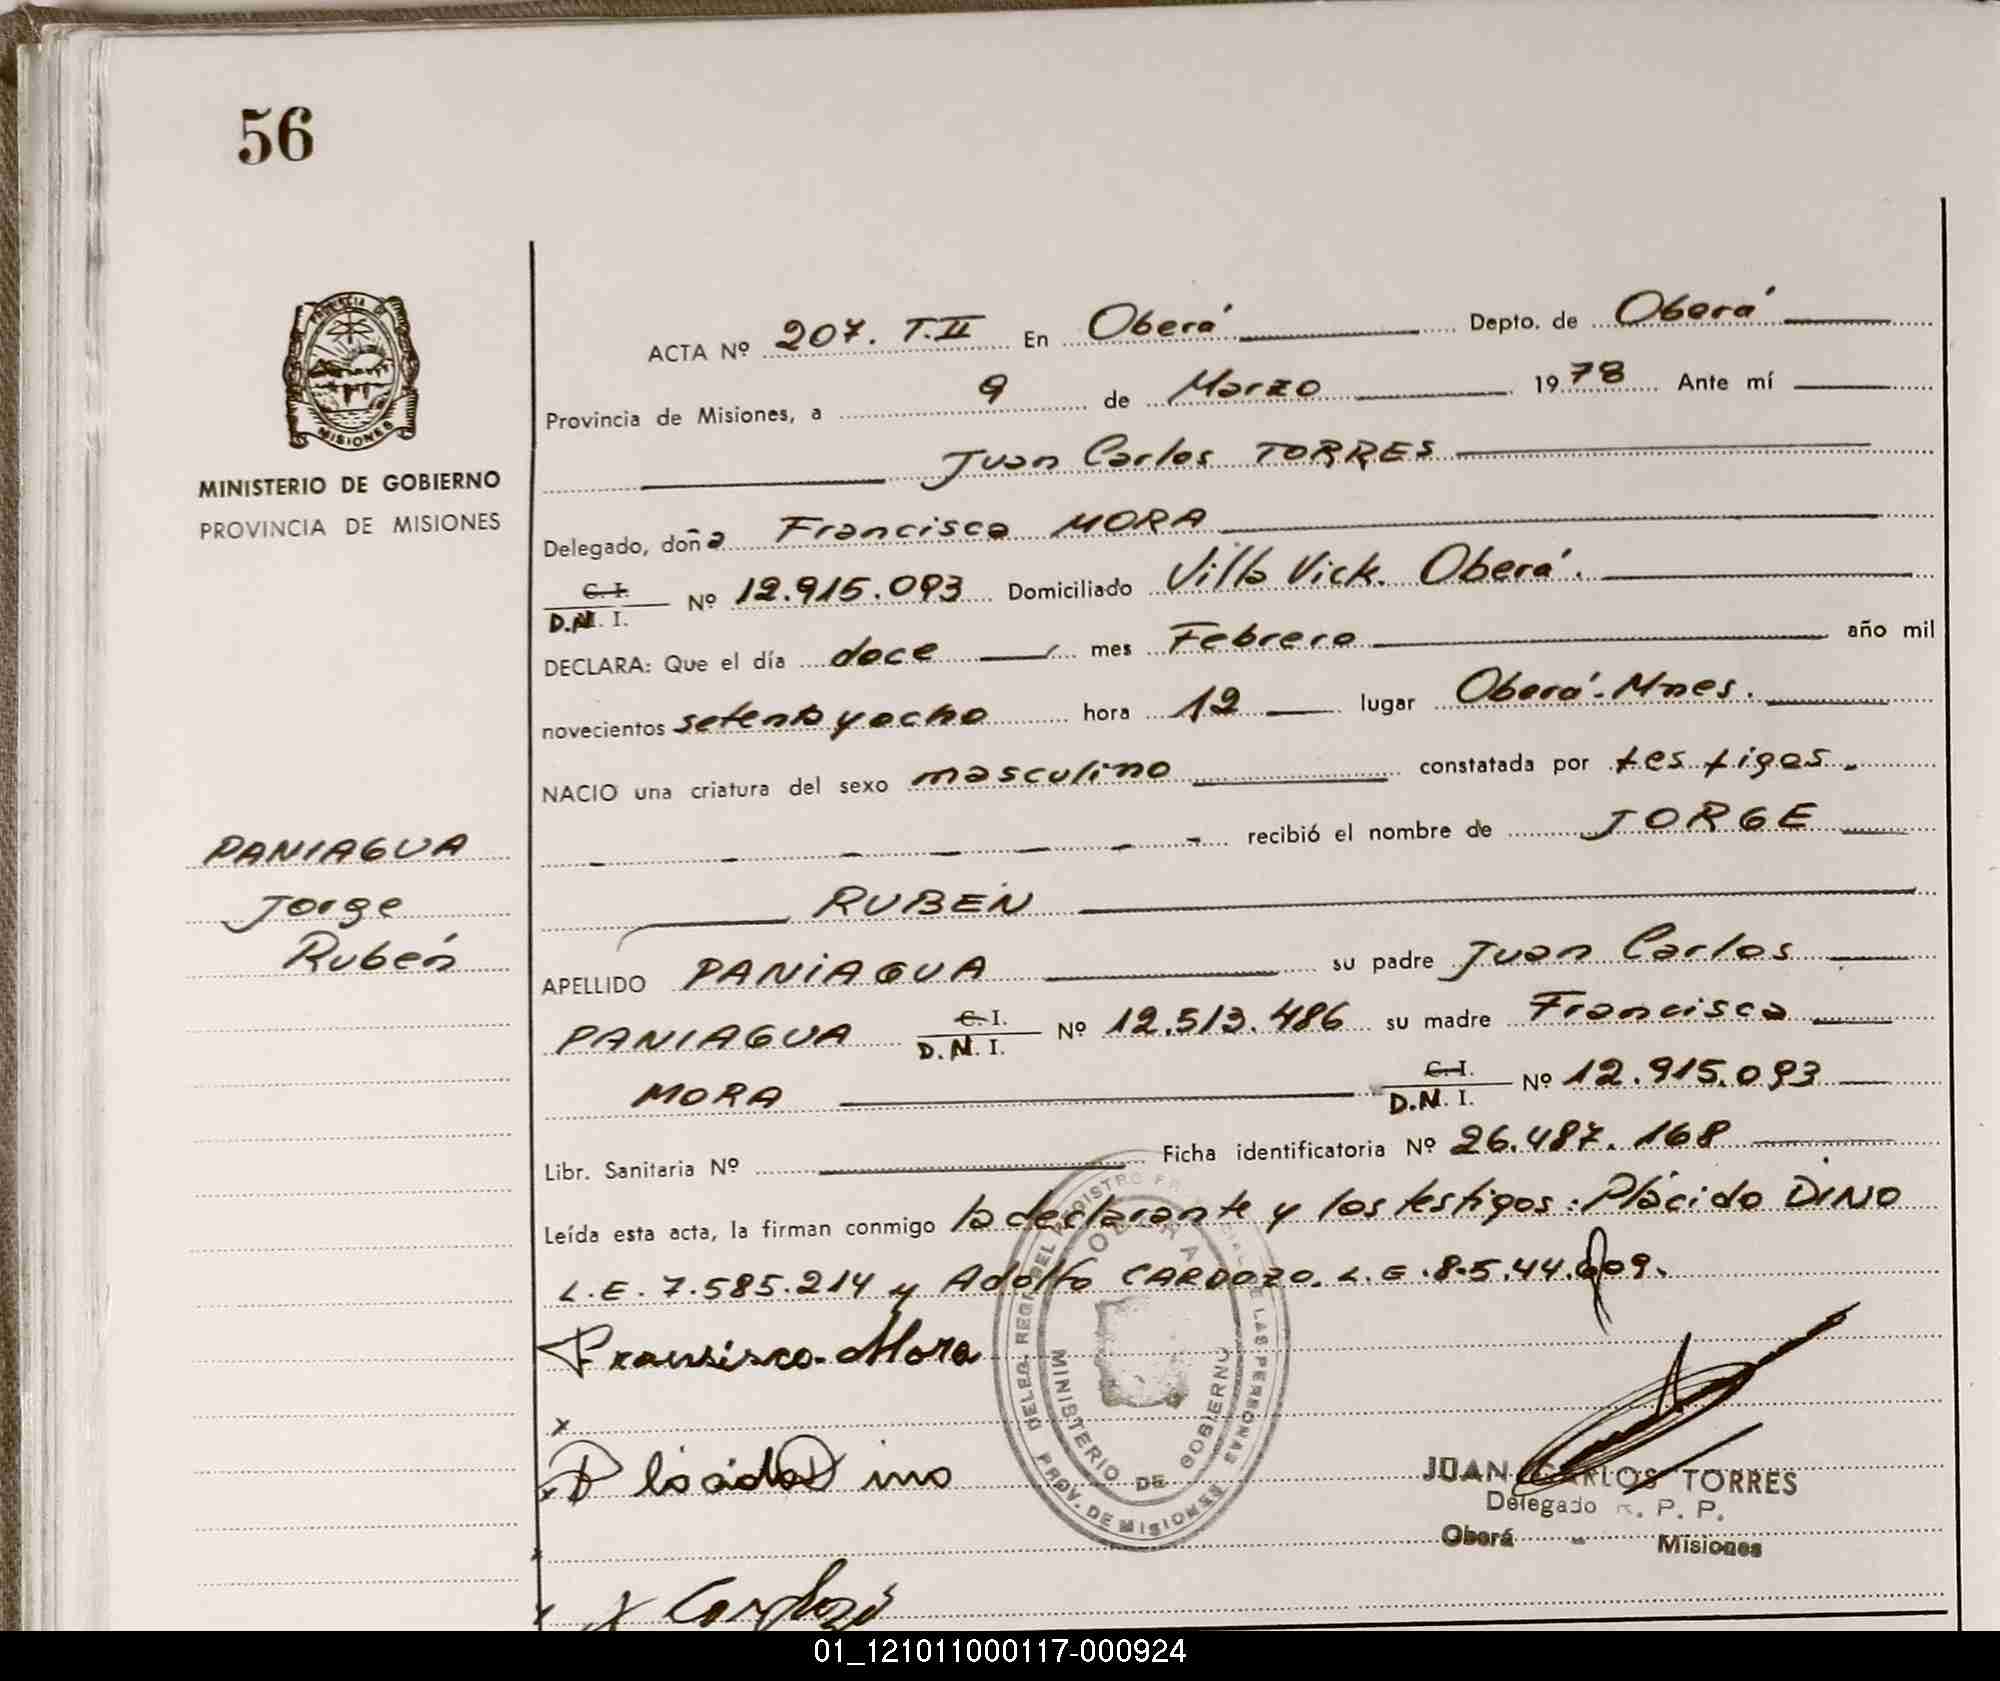 56
PROVINCIA DE
MISIONES
MINISTERIO DE GOBIERNO
PROVINCIA DE MISIONES
ACTA Nº 207. T.II En Oberá Depto. de Oberá
Provincia de Misiones, a 9 de Marzo 1978 Ante mí
Juan Carlos TORRES
Delegado, doña Francisca MORA
C. I.
D.N. I. Nº 12.915.093 Domiciliado Villa Vick. Oberá.
DECLARA: Que el día doce mes Febrero año mil
novecientos setenta y ocho hora 12 lugar Oberá-Mnes.
NACIO una criatura del sexo masculino constatada por testigos.
recibió el nombre de JORGE
RUBEN
PANIAGUA
Jorge
Rubén
APELLIDO PANIAGUA su padre Juan Carlos
PANIAGUA C. I.
D.N. I. Nº 12.513.486 su madre Francisca
MORA C. I.
D.N. I. Nº 12.915.093
Libr. Sanitaria Nº Ficha identificatoria Nº 26.487.168
Leída esta acta, la firman conmigo la declarante y los testigos: Plácido DINO
L.E. 7.585.214 y Adolfo CARDOZO. L.E. 8.5.44.609.
Fransisca Mora
x
x Placido Dino
x
x Cardozo
DELEG. REG. DEL REGISTRO PROVINCIAL DE LAS PERSONAS
OBERA
MINISTERIO DE GOBIERNO
PROV. DE MISIONES
JUAN CARLOS TORRES
Delegado R. P. P.
Oberá - Misiones
01_121011000117-000924